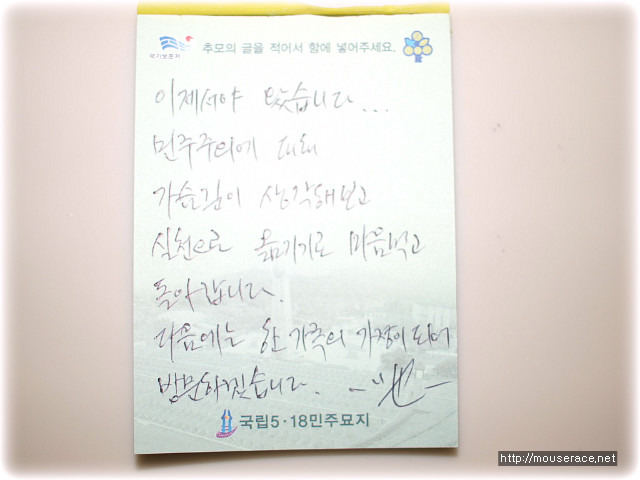 국가보훈처
추모의 글을 적어서 함에 넣어주세요.
이제서야 왔습니다...
민주주의에 대해
가슴깊이 생각해보고
실천으로 옮기기로 마음먹고
돌아갑니다.
다음에는 한 가족의 가장이 되어
방문하겠습니다.
국립5·18민주묘지
http://mouserace.net